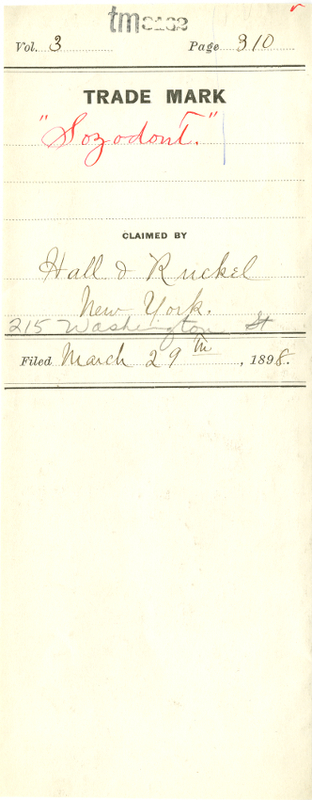 tm
Vol. 3 Page 310
TRADE MARK
"Sozodont."
CLAIMED BY
Hall & Ruckel
New York.
215 Washington St
Filed March 29th, 1898.